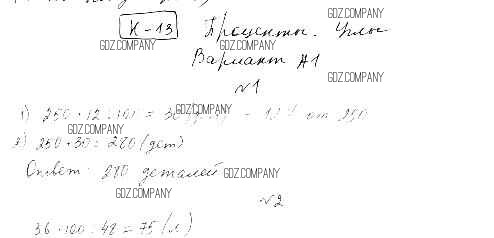 К-13
GDZ.COMPANY
Проценты. Углы
GDZ.COMPANY
GDZ.COMPANY
Вариант А1
GDZ.COMPANY
№1
1) 250 · 12 : 100 = 30 - 12% от 250
GDZ.COMPANY
GDZ.COMPANY
2) 250 + 30 = 280 (дет)
Ответ: 280 деталей
GDZ.COMPANY
GDZ.COMPANY
№2
36 · 100 : 48 = 75 (л)